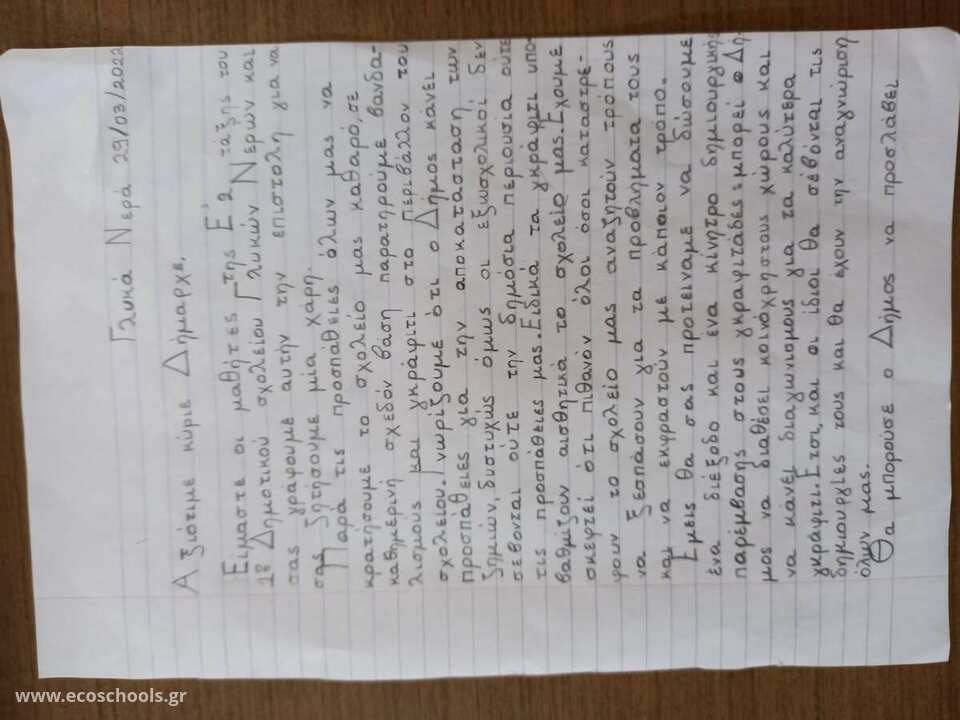 Γλυκά Νερά 29/03/2022
Αξιότιμε κύριε Δήμαρχε,
Είμαστε οι μαθητές της Ε'2 τάξης του
2ου Δημοτικού σχολείου Γλυκών Νερών και
σας γράφουμε αυτήν την επιστολη για να
σας ζητήσουμε μία χάρη.
Παρά τις προσπάθειες όλων μας να
κρατήσουμε το σχολείο μας καθαρό, σε
καθημερινή σχεδόν βαση παρατηρούμε βανδα-
λισμους και γκράφιτι στο περιβάλλον του
σχολείου. Γνωρίζουμε ότι ο Δήμος κάνει
προσπάθειες για την αποκατάσταση των
ζημιών, δυστυχώς όμως οι εξωσχολικοί δεν
σεβονται ούτε την δημόσια περιουσία ούτε
τις προσπάθειες μας. Ειδικά τα γκράφιτι υπο-
βαθμίζουν αισθητικά το σχολείο μας. Εχουμε
σκεφτεί ότι πιθανόν όλοι όσοι καταστρέ-
φουν το σχολείο μας αναζητούν τρόπους
να ξεσπάσουν για τα προβλήματα τους
και να εκφραστούν με κάποιον τρόπο.
Εμείς θα σας προτείναμε να δώσουμε
ένα διέξοδο και ένα κίνητρο δημιουργικής
παρέμβασης στους γκραφιτάδες: μπορεί ο Δη-
μος να διαθέσει κοινόχρηστους χώρους και
να κάνει διαγωνισμους για τα καλύτερα
γκράφιτι. Ετσι, και οι ίδιοι θα σέβονται τις
δημιουργίες τους και θα έχουν την αναγνώριση
όλων μας.
Θα μπορούσε ο Δήμος να προσλάβει
www.ecoschools.gr